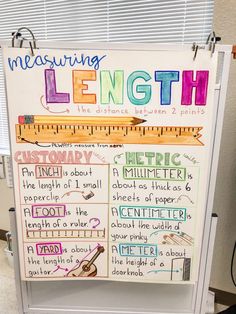 measuring
LENGTH
the distance between 2 points
Always measure from zero!
CUSTOMARY
An INCH is about
the length of 1 small
paperclip.
A FOOT is about
the length of a ruler.
A YARD is about
the length of a
guitar.
METRIC
A MILLIMETER is
about as thick as 6
sheets of paper.
A CENTIMETER is
about the width of
your pinky.
A METER is about
the height of a
doorknob.